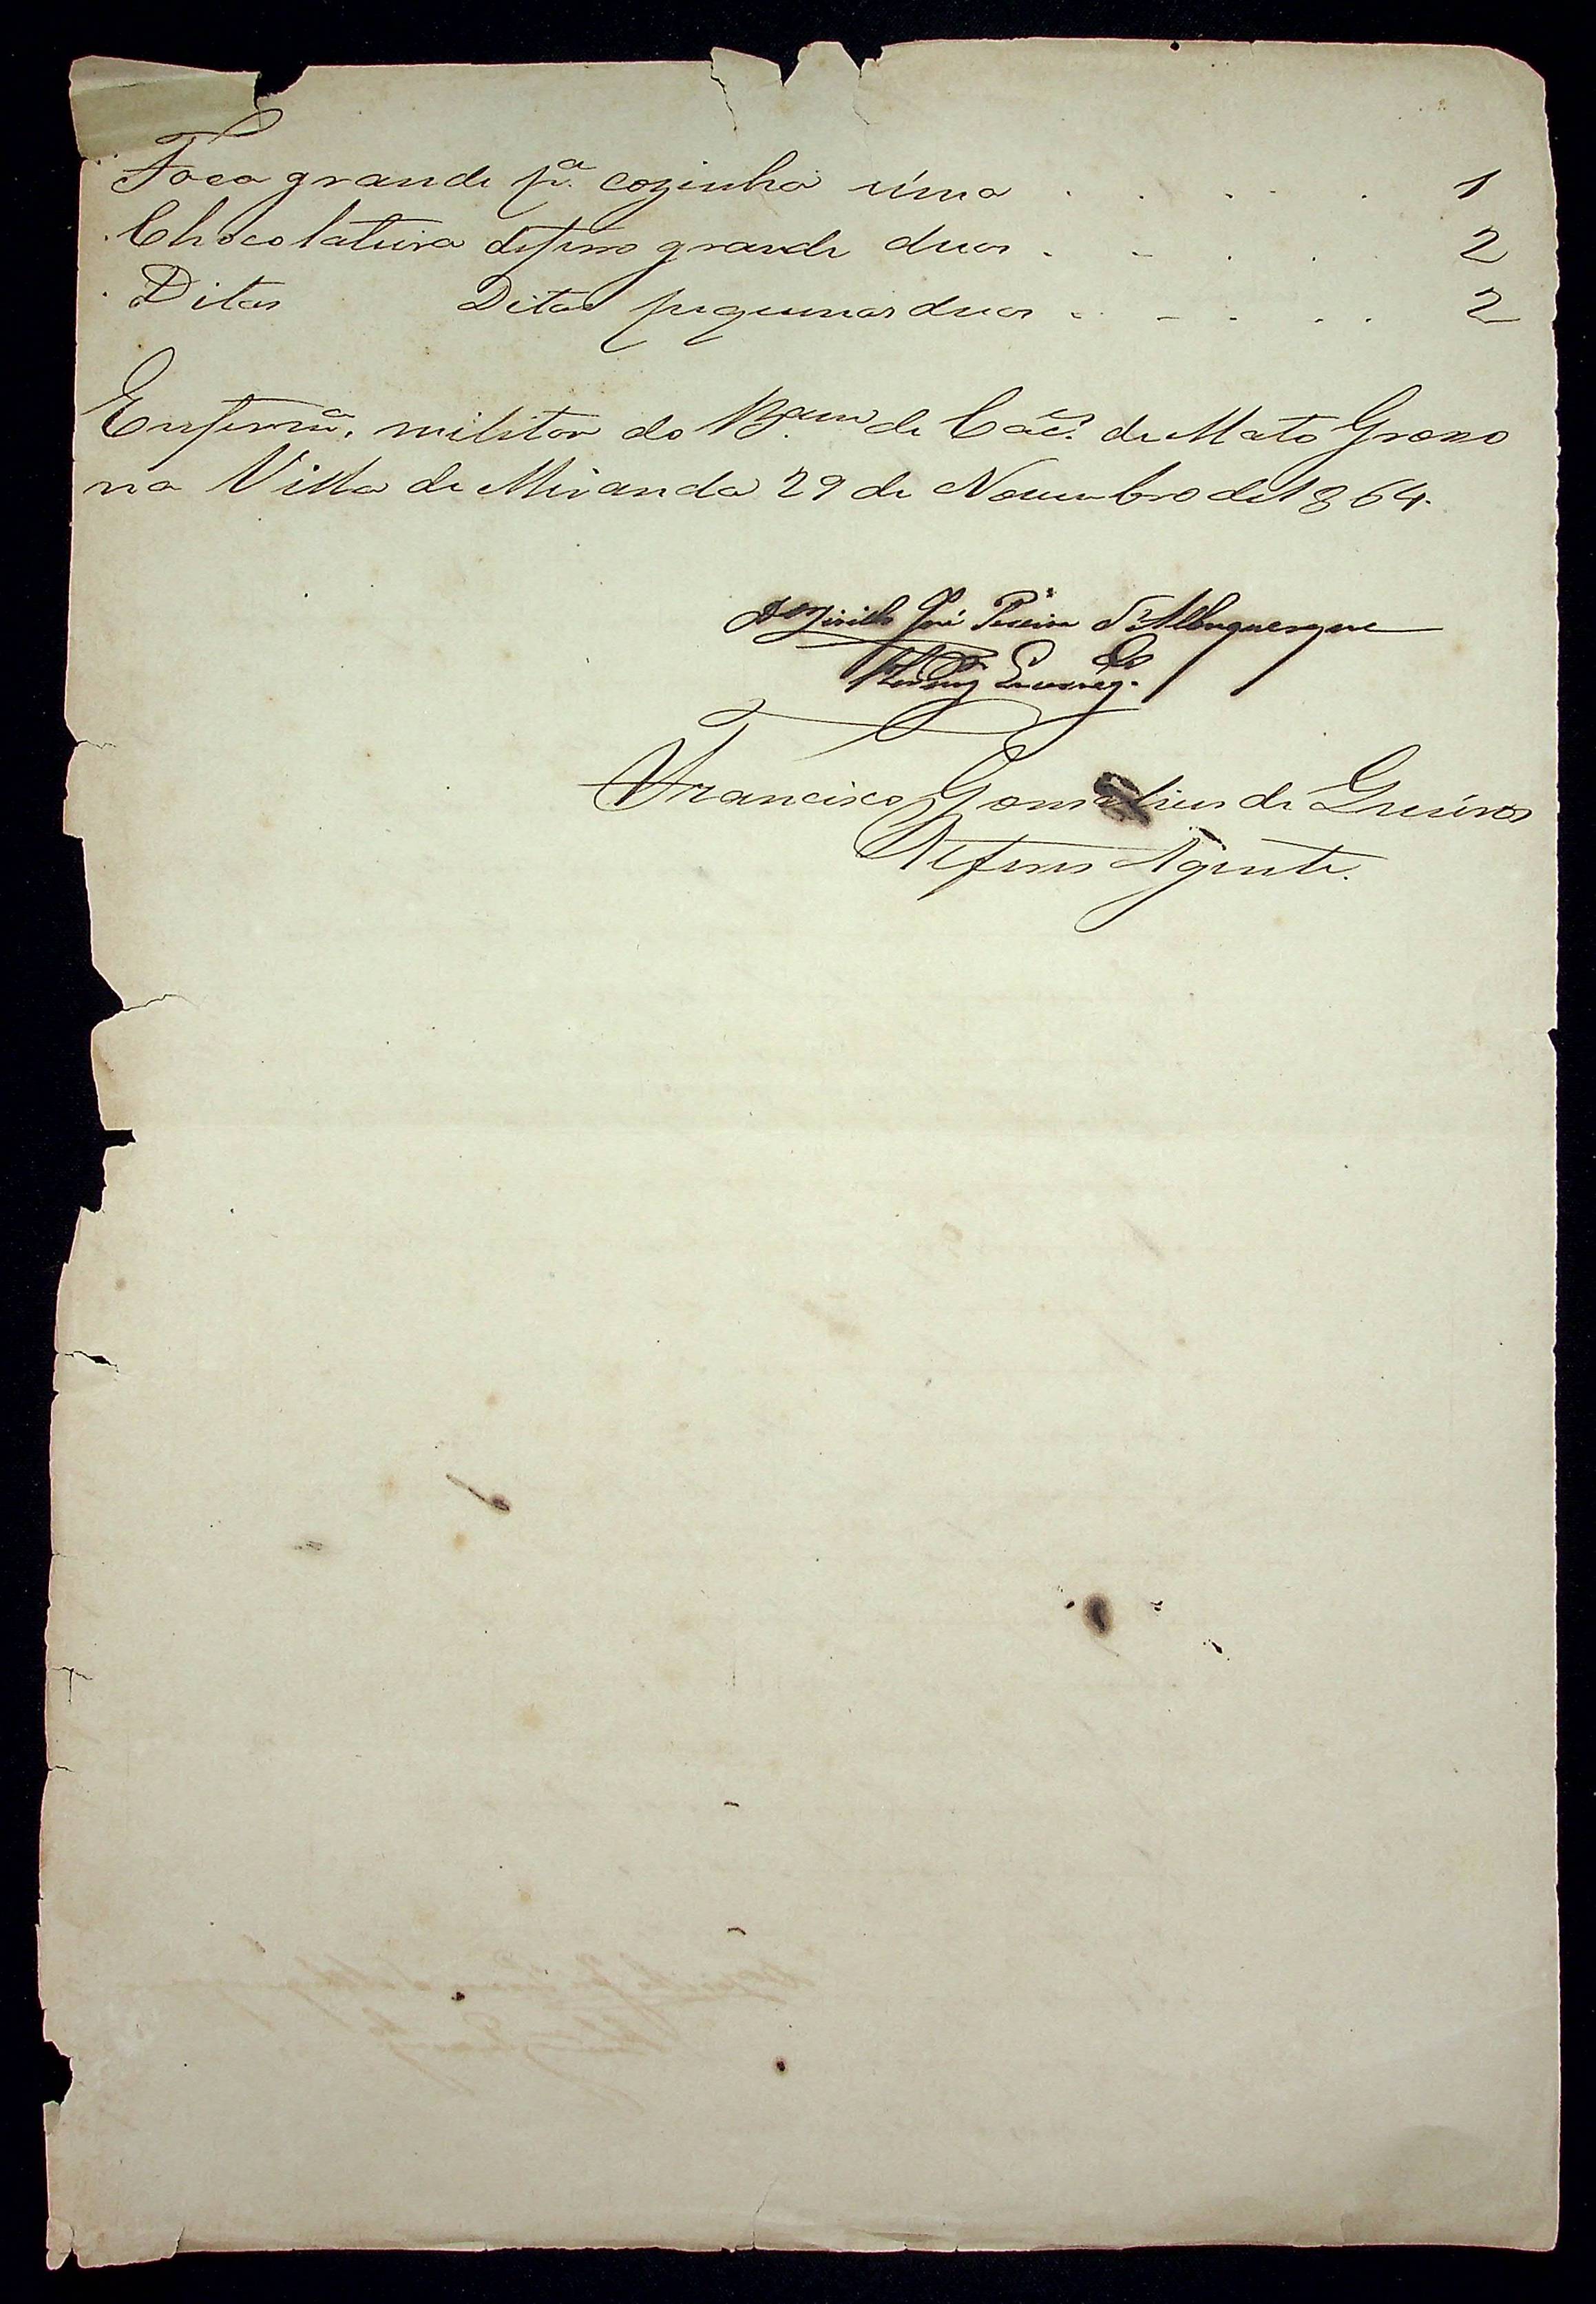 Faca grande pª. cozinha uma . . . . . 1
Chocolateira deferro grande duas . . . . . 2
Ditas Ditas pequenas duas . . . . . 2
Enfermª. militar do Bam de Caces. de Mato Grosso
na Villa de Miranda 29 de Novembro de 1864.
José Pereira d'Albuquerque
Francisco Gonsalves de
Agente.